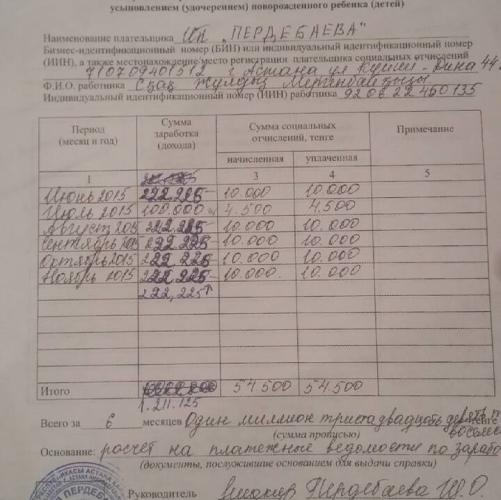 усыновлением (удочерением) новорожденного ребенка (детей)
Наименование плательщика ИП "ПЕРДЕБАЕВА"
Бизнес-идентификационный номер (БИН) или индивидуальный идентификационный номер
(ИИН), а также местонахождение/место регистрации плательщика социальных отчислений
710709401512 г Астана ул 44
Ф.И.О. работника
Индивидуальный идентификационный номер (ИИН) работника 920622450135
Период (месяц и год) Сумма заработка (дохода) Сумма социальных отчислений, тенге Примечание
начисленная уплаченная
1 3 4 5
Июнь 2015 222.225 10.000 10.000
Июль 2015 100.000 4.500 4.500
Август 2015 222.225 10.000 10.000
Сентябрь 2015 222.225 10.000 10.000
Октябрь 2015 222.225 10.000 10.000
Ноябрь 2015 222.225 10.000 10.000
222,225
Итого 54500 54500
1.211.125
Всего за 6 месяцев Один миллион триста двадцать тенге
(сумма прописью)
Основание: расчет на платежные ведомости по
(документы, послужившие основанием для выдачи справки)
Руководитель Пердебаева